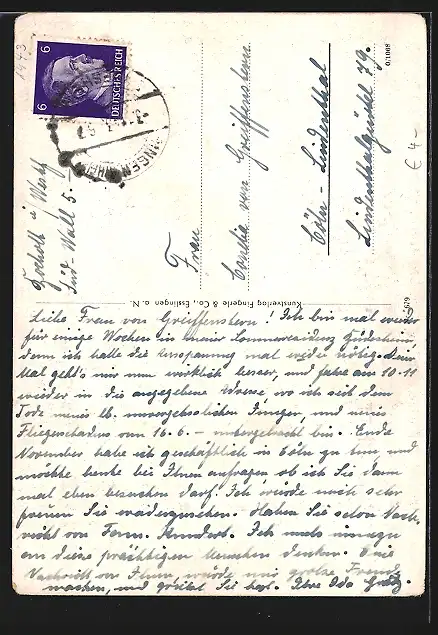 1943
6
6
DEUTSCHES REICH
BINGEN
Süd-Wall 5.
Frau
Cornelia von Greiffenstern
Cöln-Lindenthal
Lindenthalgürtel 79.
O/1008
€ 4-
Kunstverlag Fingerle & Co., Esslingen a. N.
679
Liebe Frau von Greiffenstern! Ich bin mal wieder
für einige Wochen in meiner Sommerresidenz
denn ich hatte die Ausspannung mal wieder nötig.
Mal geht's mir nun wirklich besser, und fahre am 10.11
wieder in die angegebene Adresse, wo ich seit dem
Tode meines lb. unvergesslichen und meines
Fliegerschadens vom 16.6. – untergebracht bin. Ende
November habe ich geschäftlich in Cöln zu tun, und
möchte heute bei Ihnen anfragen, ob ich Sie dann
mal eben besuchen darf. Ich würde mich sehr
freuen Sie wiederzusehen. Haben Sie schon Nach-
richt von Ich muss immer
an diese prächtigen Menschen denken. Eine
Nachricht von Ihnen würde mir große Freude
machen, und grüßt Sie hzl. Ihre Ida